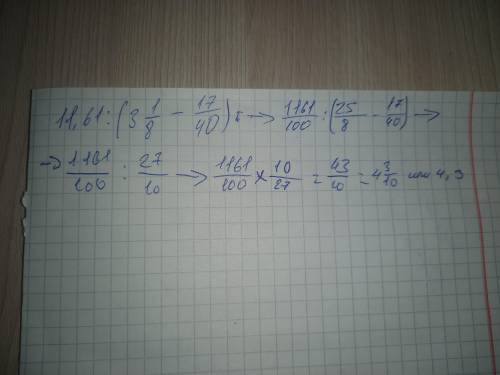 11,61:(3 1/8 − 17/40) = → 1161/100 : (25/8 − 17/40) →
→ 1161/100 : 27/10 → 1161/100 × 10/27 = 43/10 = 4 3/10 или 4,3